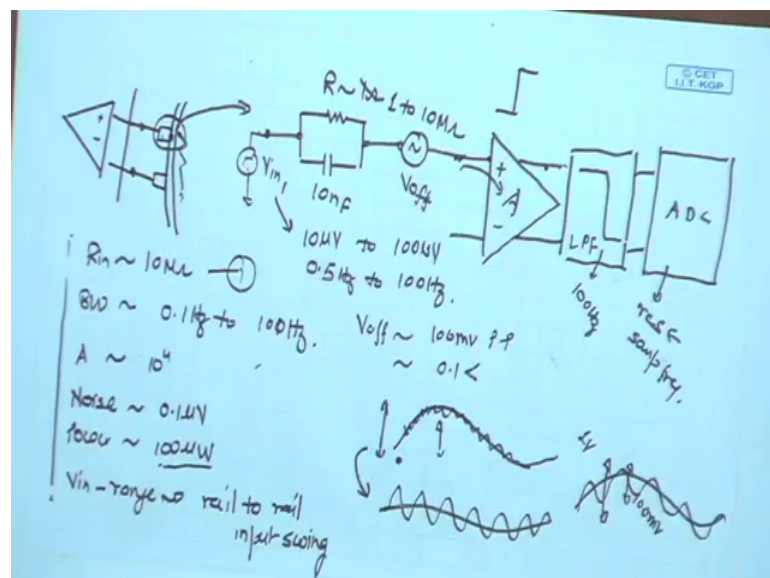 © CET
I.I.T. KGP
R ~ 1 to 10MΩ
+
-
Vin,
10nf
Voff
+
A
-
LPF
ADC
100Hz
10μV to 100μV
0.5Hz to 100Hz.
Rin ~ 10MΩ
BW ~ 0.1Hz to 100Hz.
A ~ 10⁴
Noise ~ 0.1μV
Power ~ 100μW
Vin-range → rail to rail
input swing
Voff ~ 100mV PP
~ 0.1<
100mV